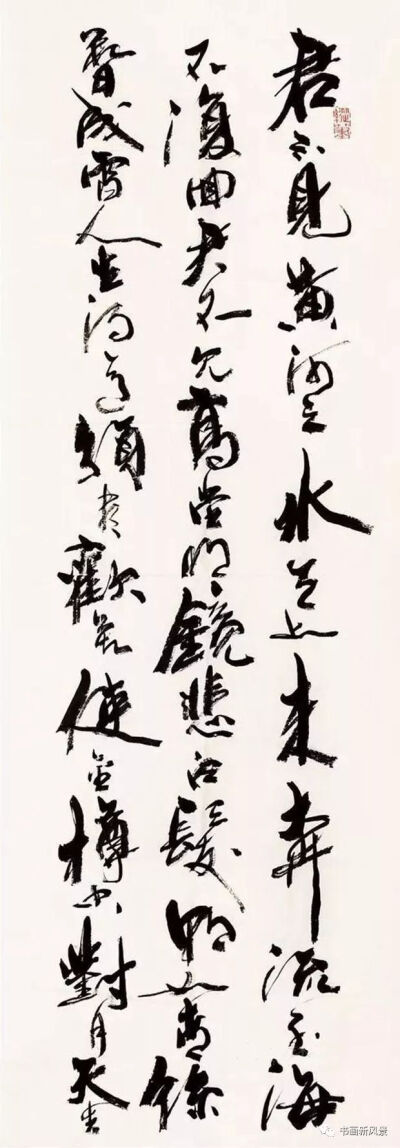 君不見黄河之水天上来奔流到海
不復回君不見高堂明鏡悲白髮朝如青絲
暮成雪人生得意須盡歡莫使金樽空對月天生
书画新风景